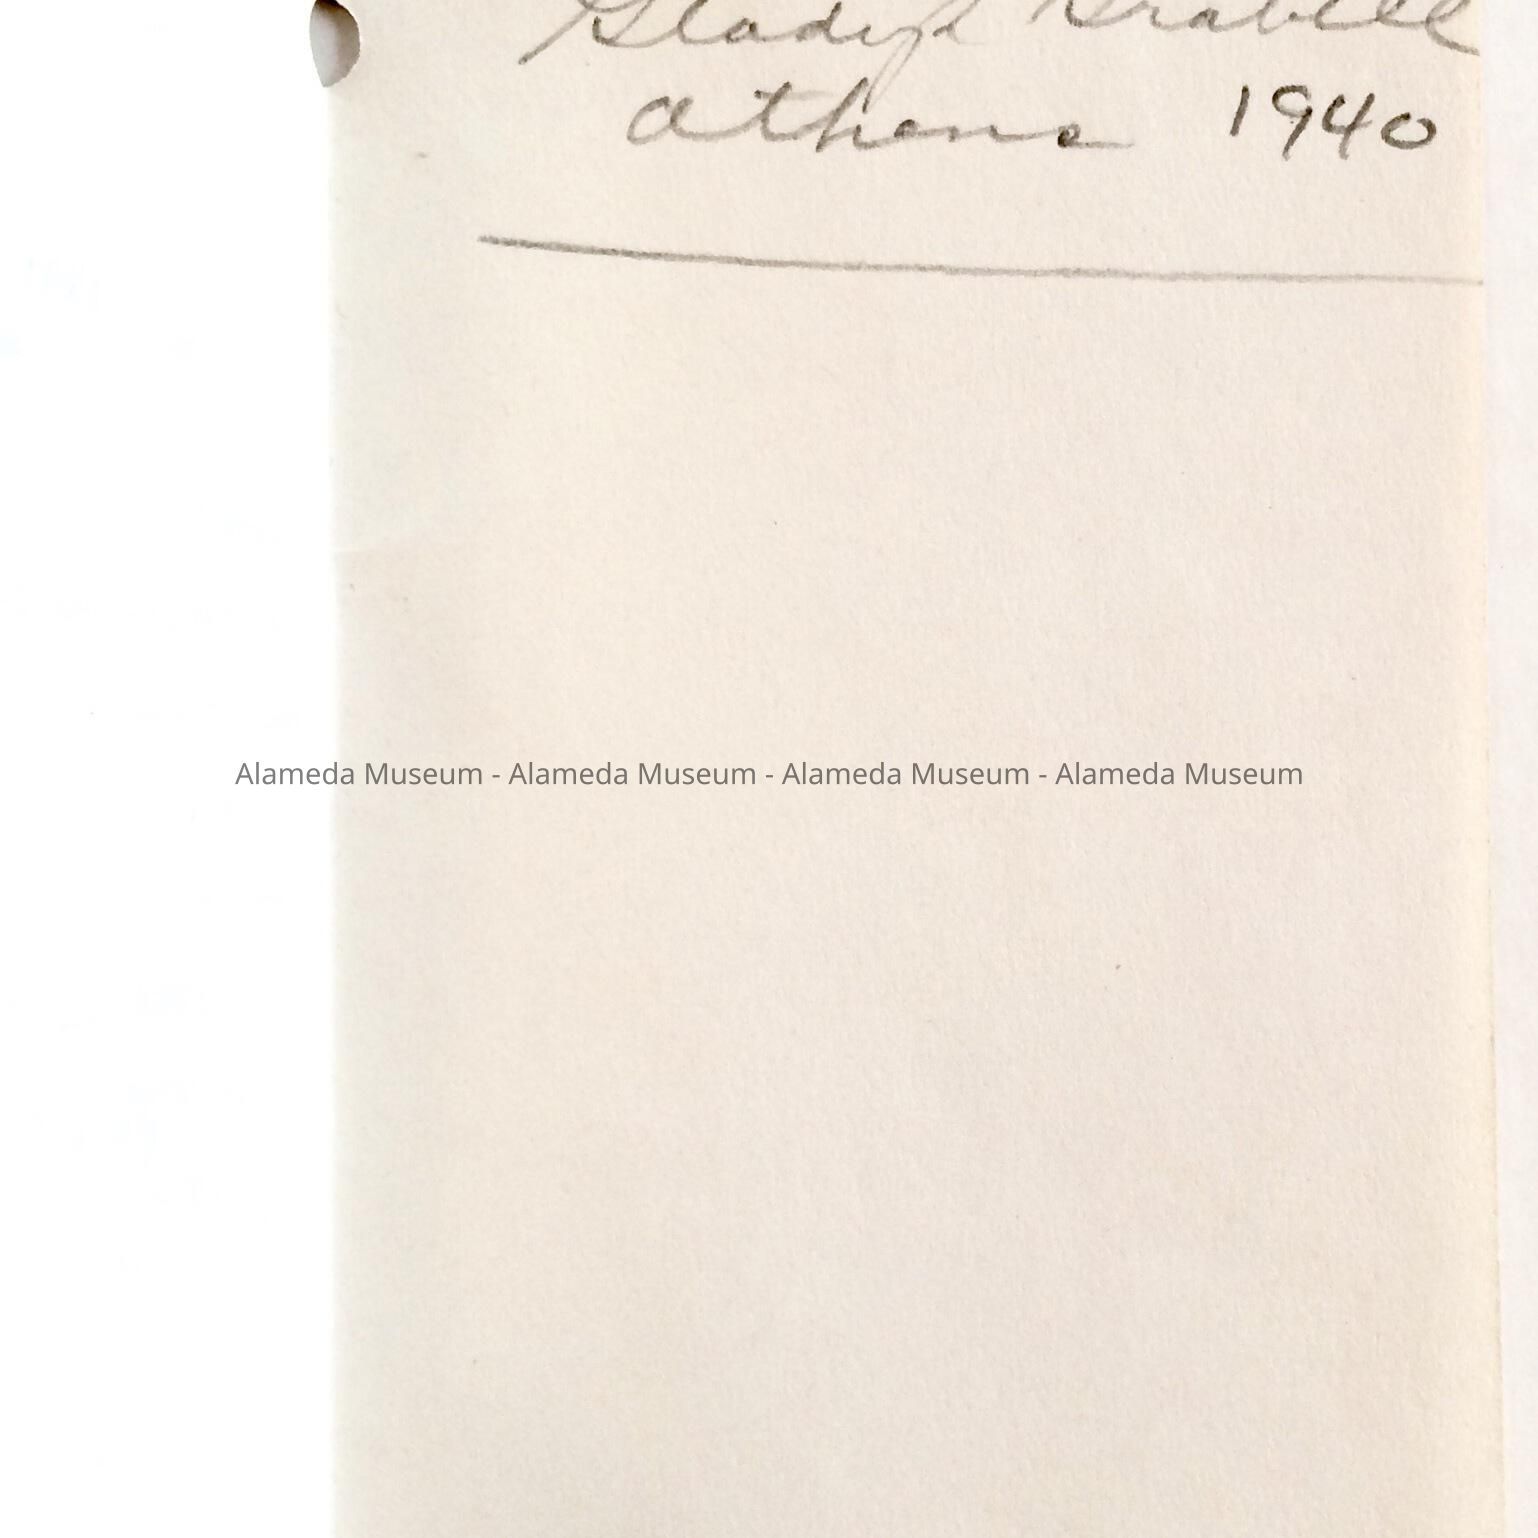 Gladys Grabill
Athens 1940
Alameda Museum - Alameda Museum - Alameda Museum - Alameda Museum